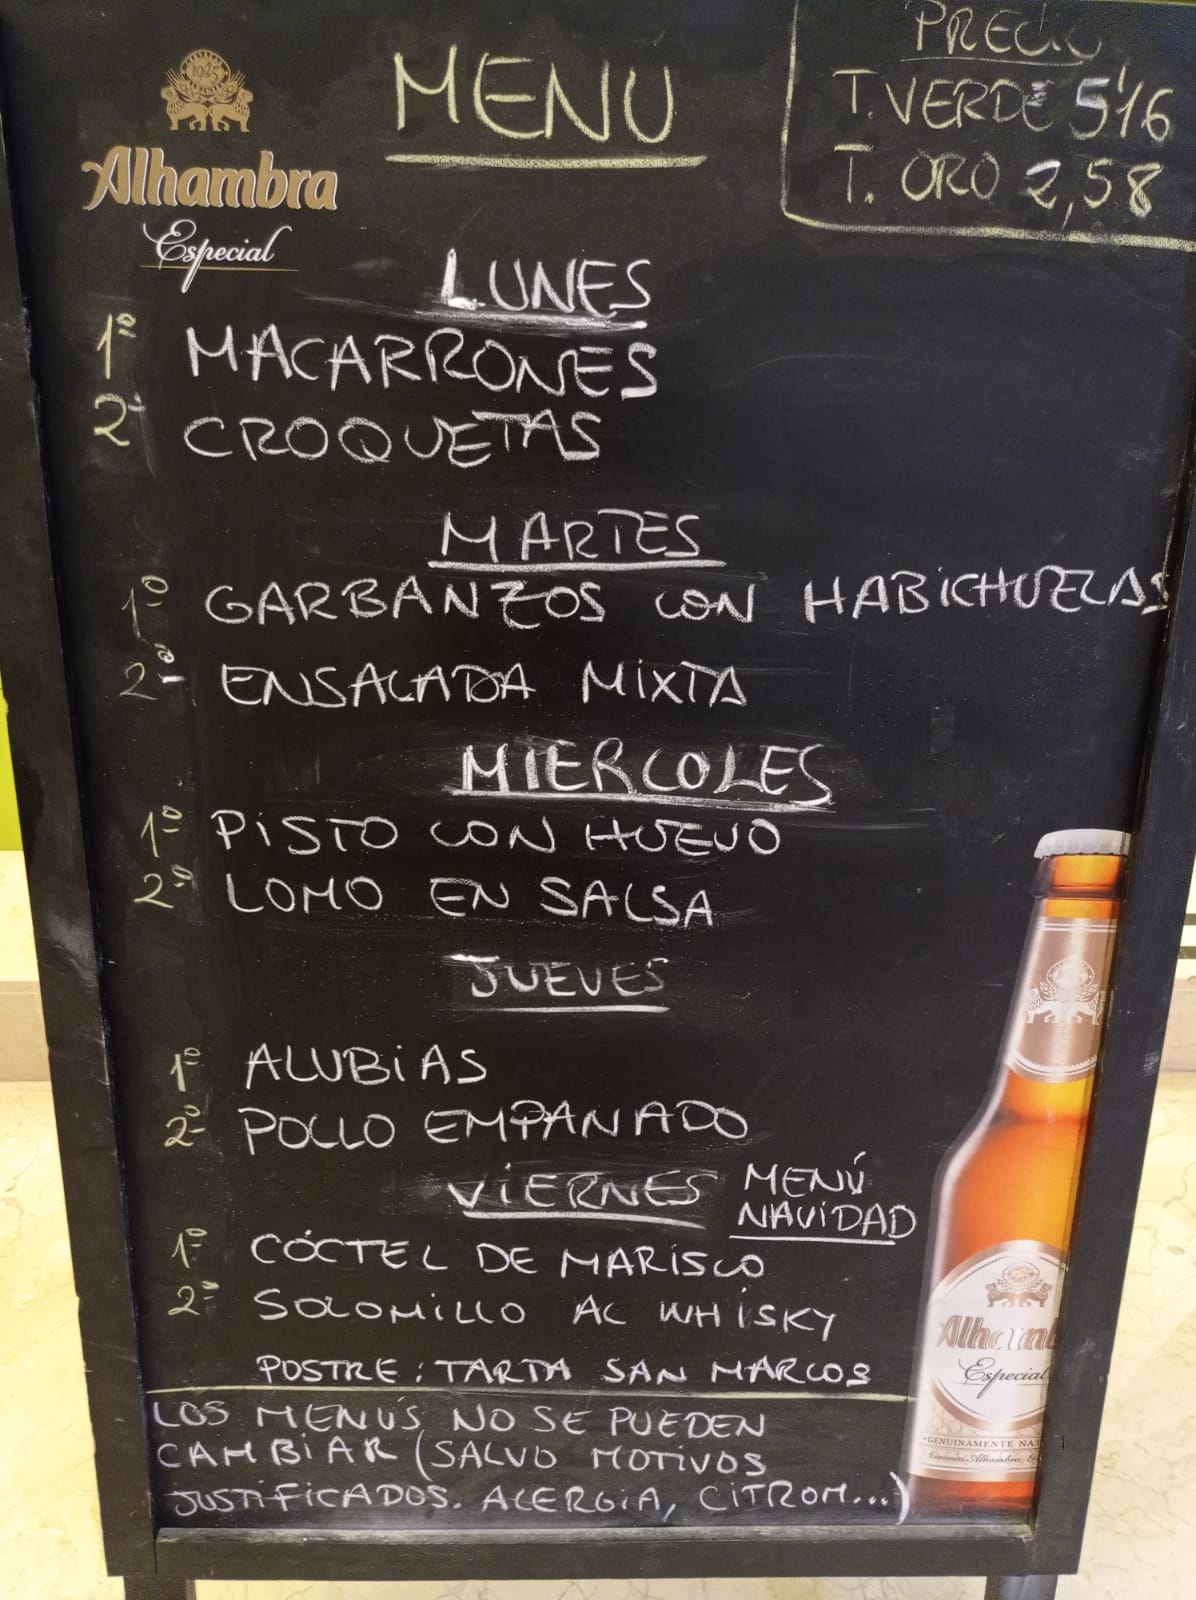 PRECIO
MENU
T. VERDE 5'16
T. ORO 2,58
1925
Alhambra
Especial
LUNES
1º MACARRONES
2º CROQUETAS
MARTES
1º GARBANZOS CON HABICHUELAS
2º ENSALADA MIXTA
MIERCOLES
1º PISTO CON HUEVO
2º LOMO EN SALSA
JUEVES
1º ALUBIAS
2º POLLO EMPANADO
VIERNES MENÚ
NAVIDAD
1º CÓCTEL DE MARISCO
2º SOLOMILLO AL WHISKY
POSTRE: TARTA SAN MARCOS
LOS MENUS NO SE PUEDEN
CAMBIAR (SALVO MOTIVOS
JUSTIFICADOS. ALERGIA, CITROM...)
Alhamb
Especial
GENUINAMENTE NAT
Cervezas Alhambra, S.